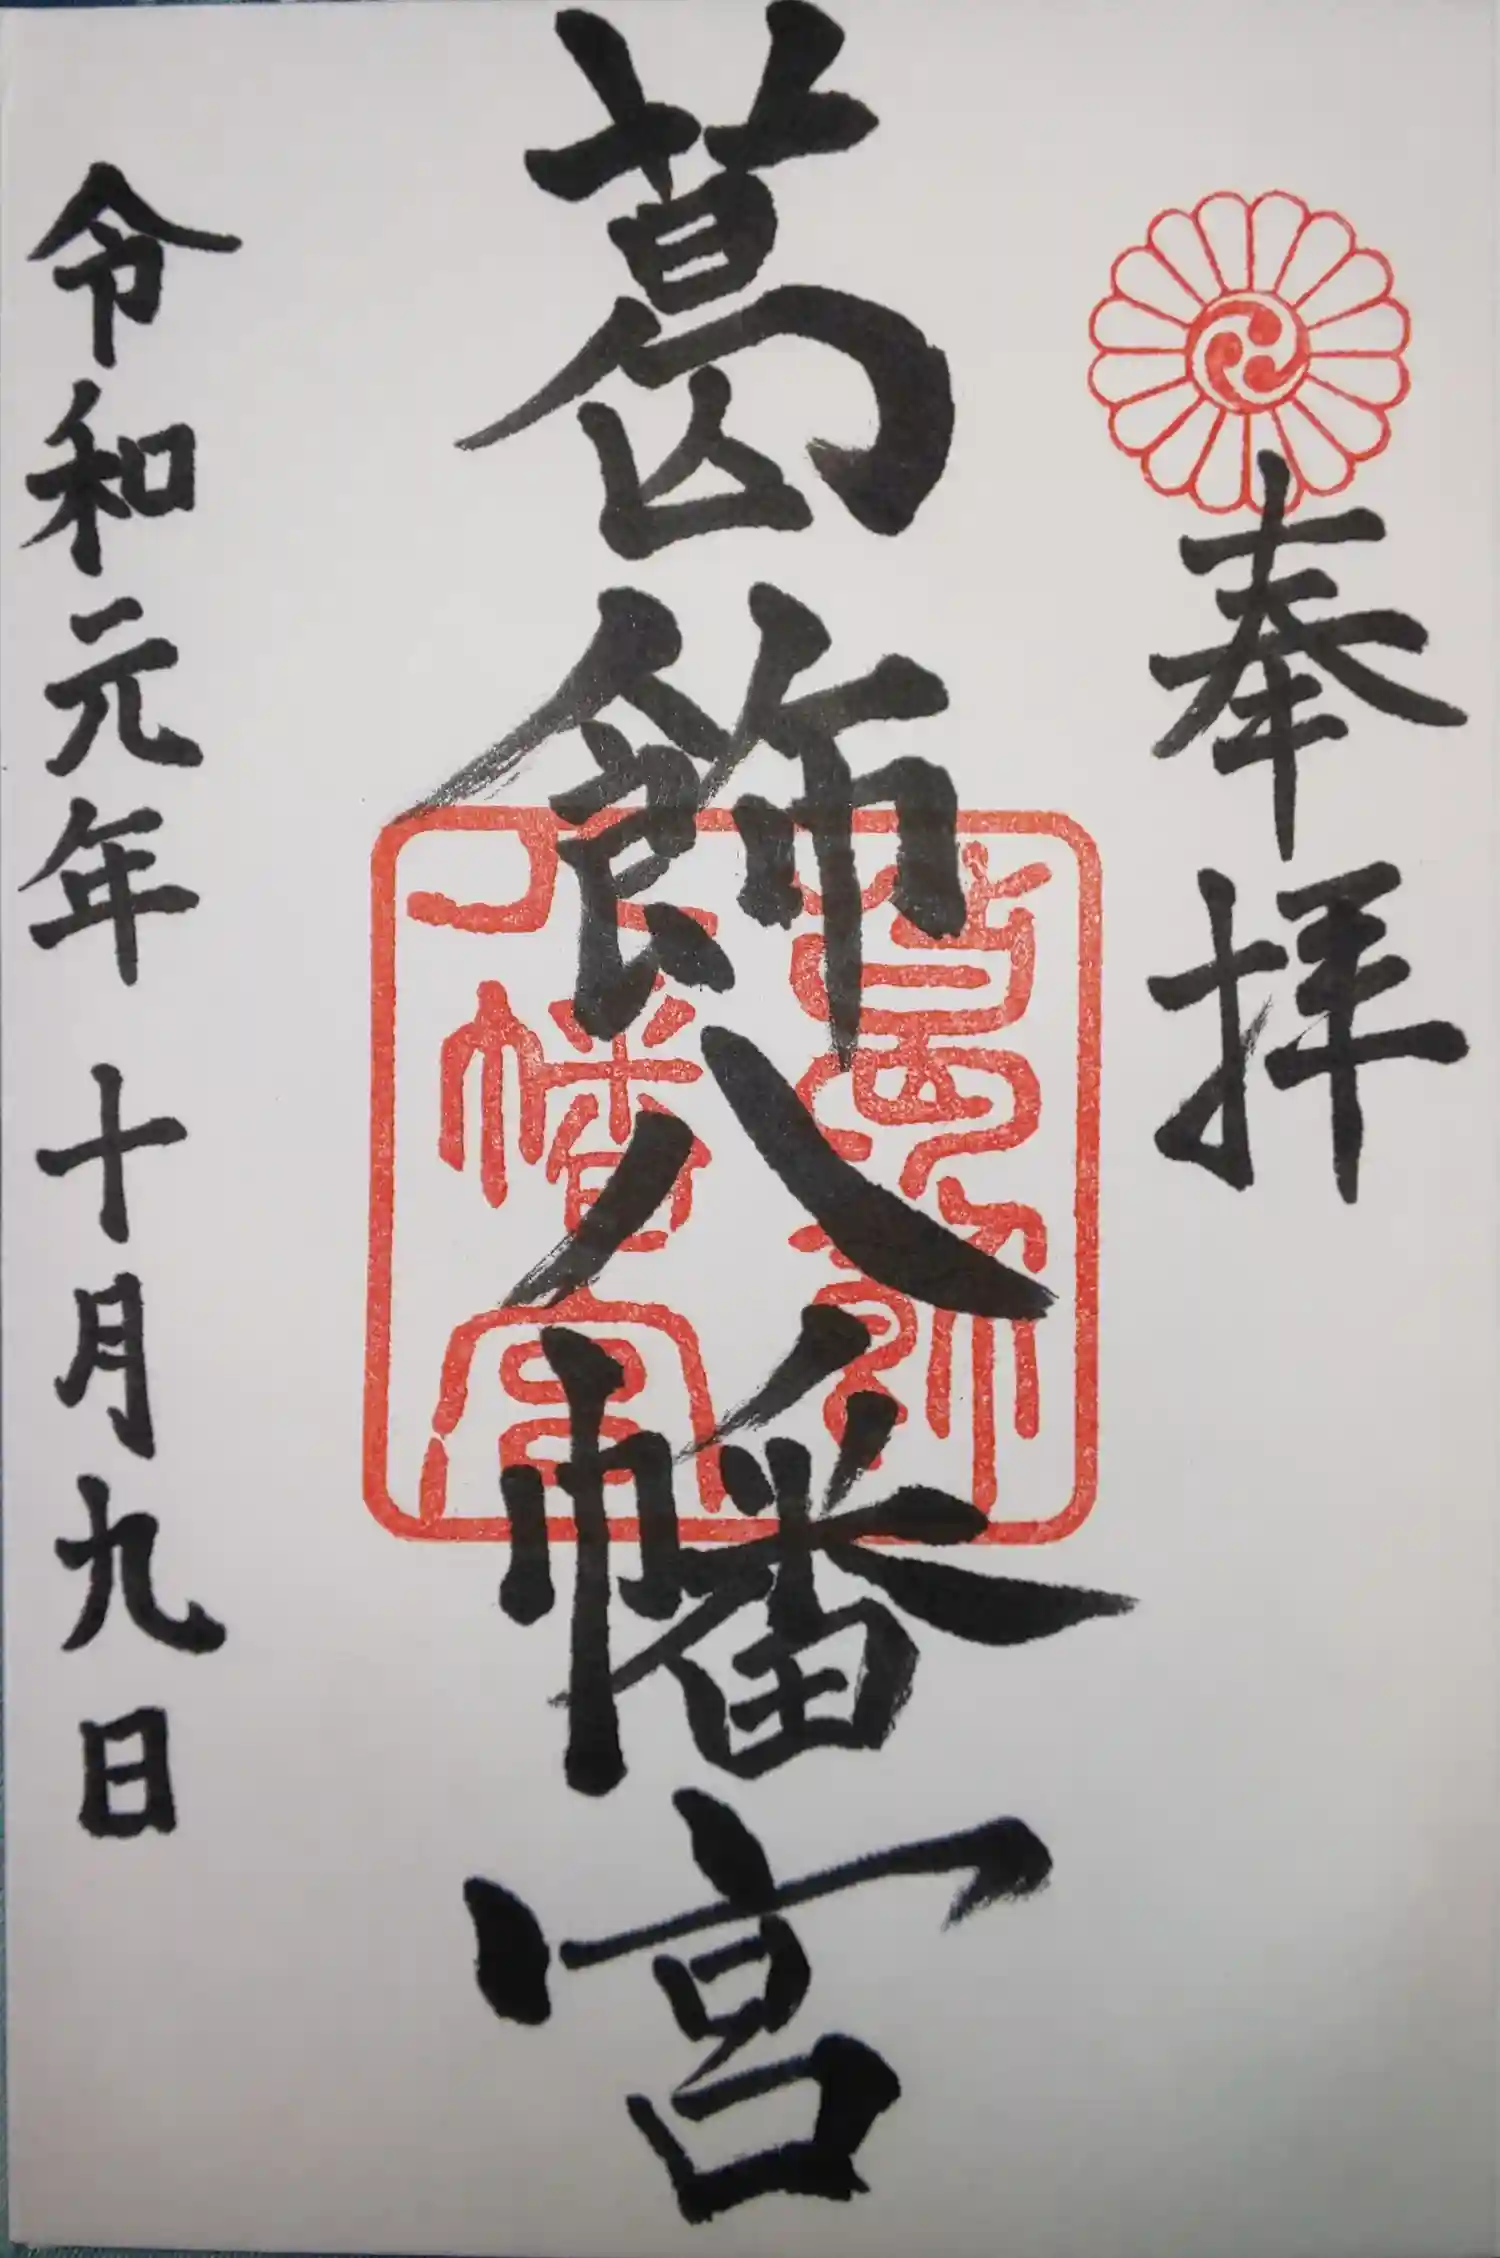 奉拝
葛飾八幡宮
葛飾
八幡宮
令和元年十月九日